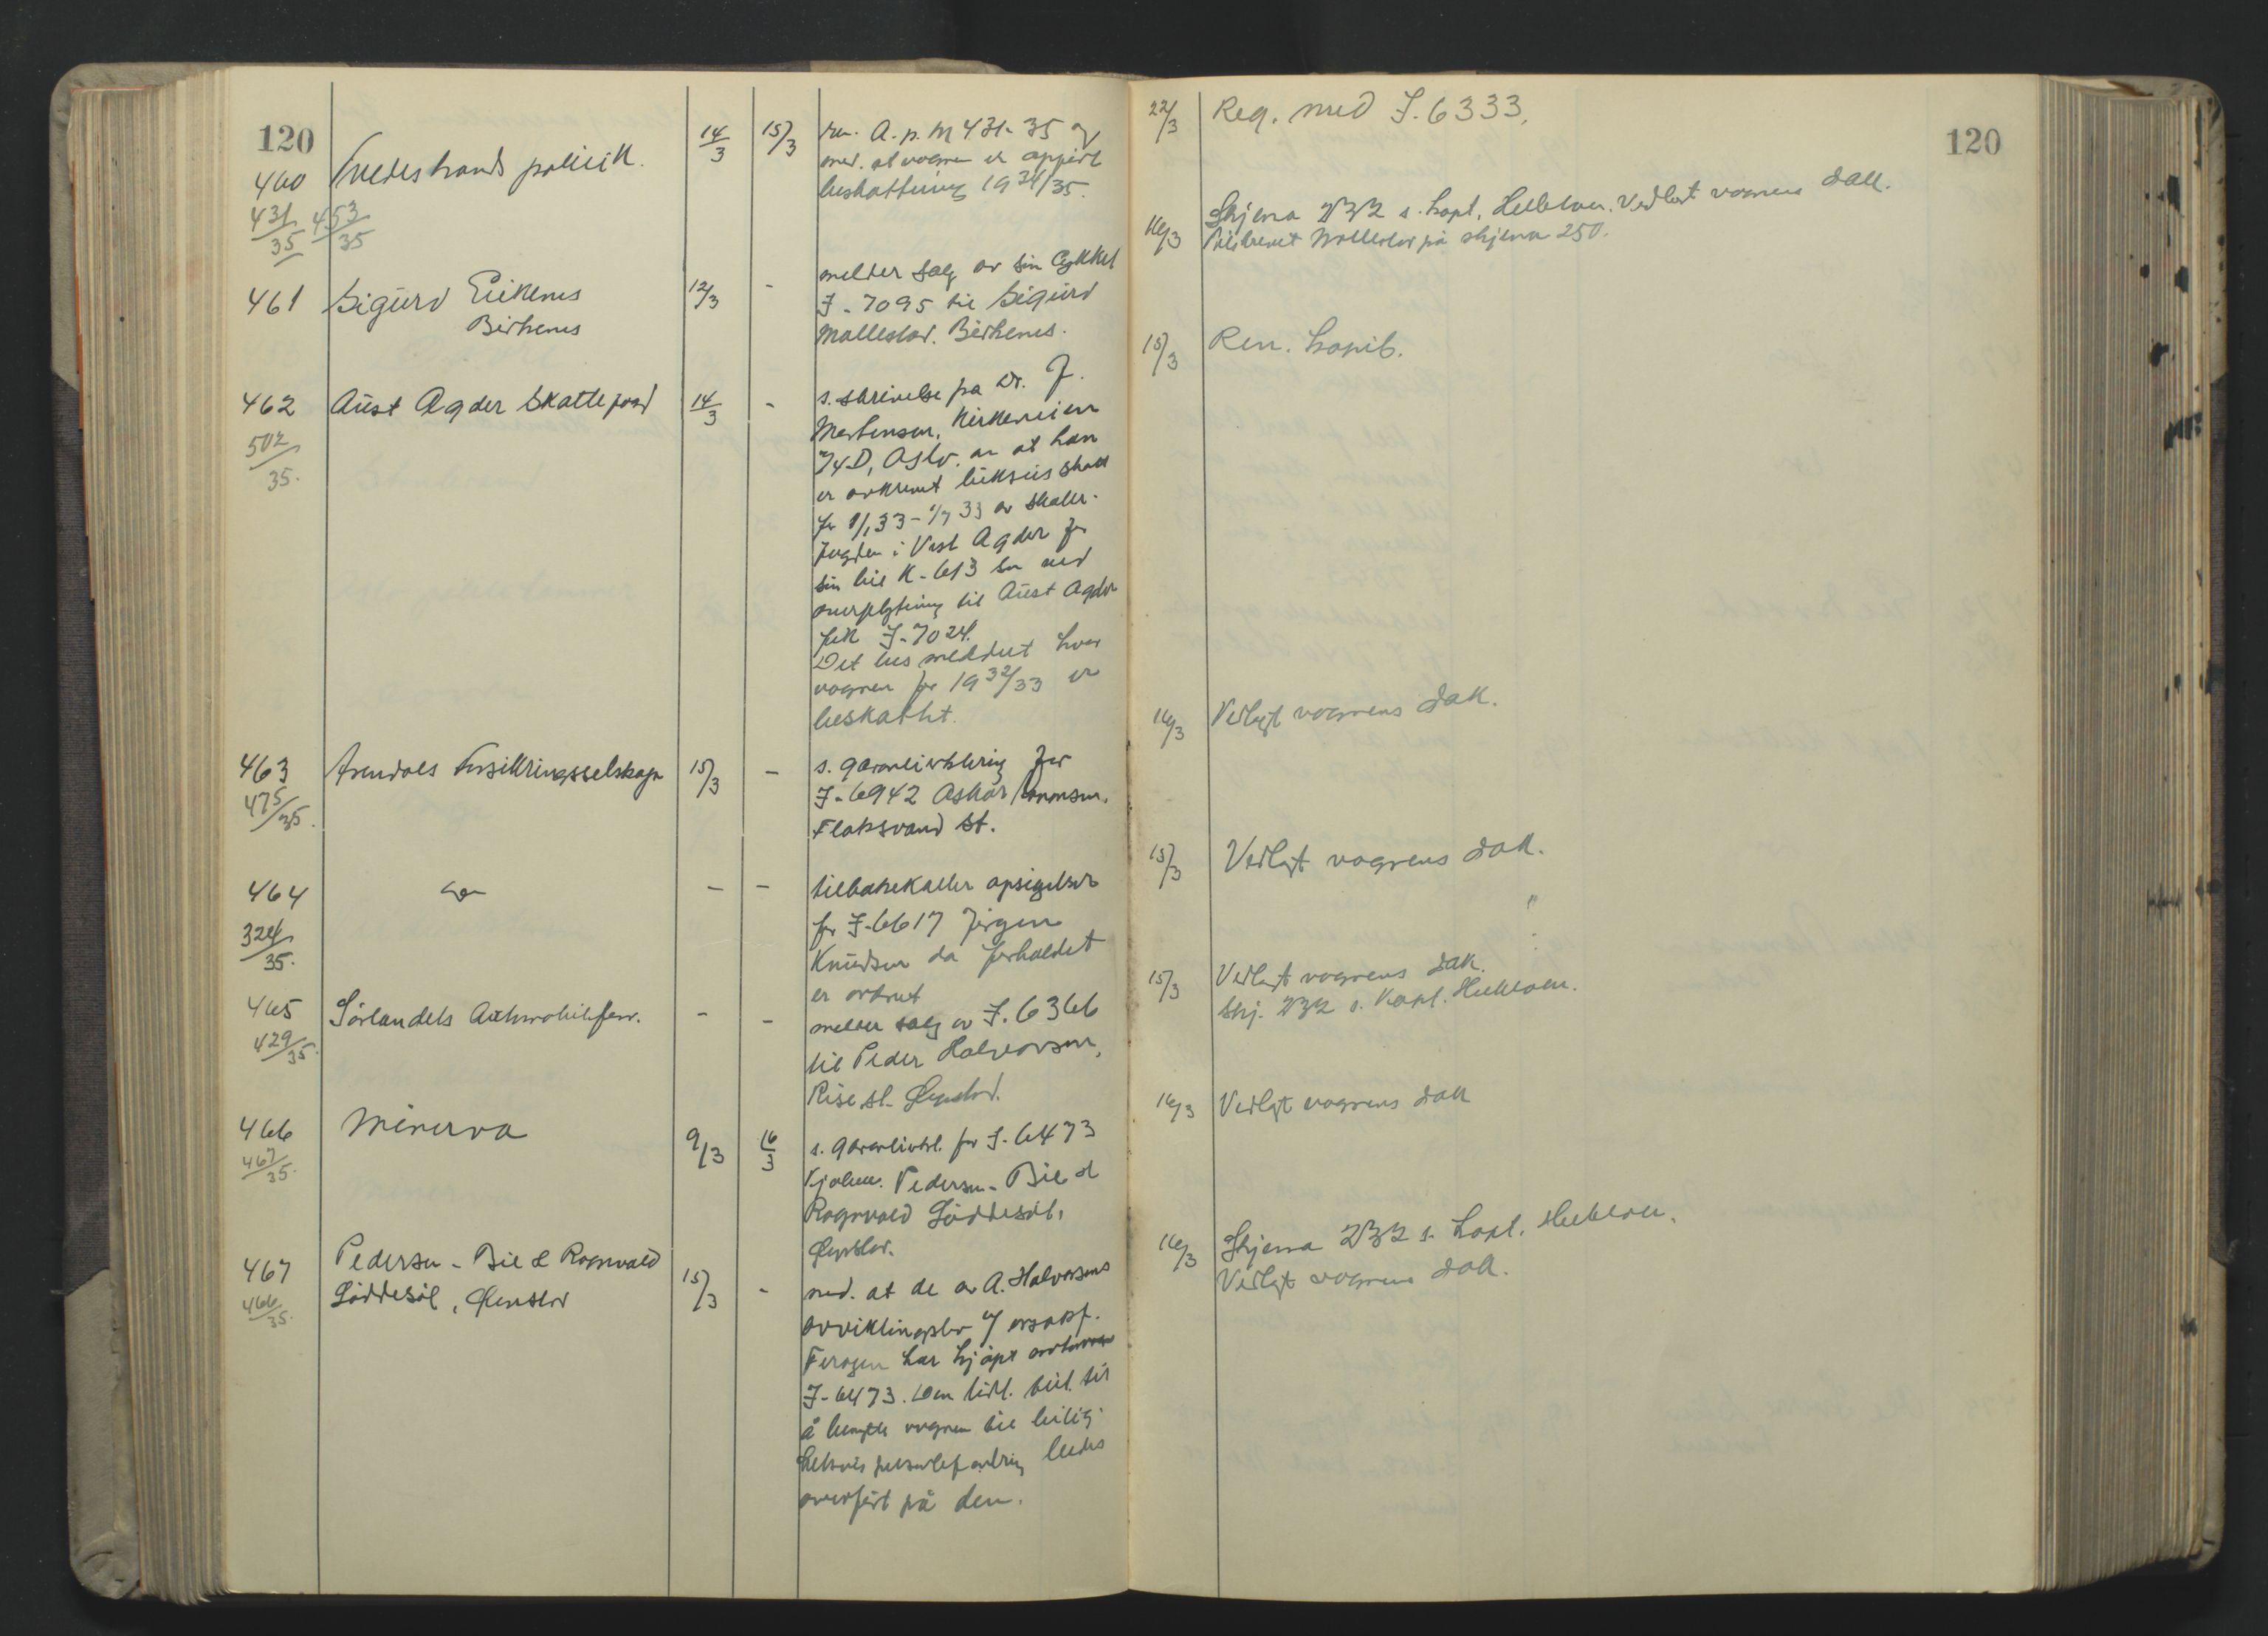 120
460 Tvedestrands politik. 14/3 15/3 ren. A. p. M 431-35 og
431/35 453/35
med. at vognen er oppført
beskattning 1934/35.
461 Sigurd Eikenes 12/3 - melder salg av sin Cykkel
Birkenes
I-7095 til Sigurd
Mollestad. Birkenes.
462 Aust Agder Skattefogd 14/3 - s. skrivelse fra Dr. J.
502/35.
Mortensen, Kirkeveien
74D, Oslo. om at han
er avkrevet luksusskatt
for 1/1 33 - 1/7 33 av skatte-
fogden i Vest Agder for
sin bil K-613 som ved
overflytning til Aust Agder
fik I-7024.
Det bes meddelt hvor
vognen for 1932/33 er
beskattet.
463 Arendals Forsikringsselskap 15/3 - s. garantierklæring for
475/35.
I-6942 Oskar
Flaksvand St.
464 do - - tilbakekaller opsigelsen
324/35.
for I-6617 Jørgen
Knudsen da forholdet
er ordnet
465 Sörlandets Automobilforr. - - melder salg av I. 6366
429/35.
til Peder Halvorsen,
Rise st. Øyestad.
466 Minerva 9/3 16/3 s. garantierkl. for I-6473
467/35.
Pedersen - Bie &
Ragnvald Löddesöl,
Øyestad.
467 Pedersen - Bie & Ragnvald
Löddesöl, Øyestad 15/3 - med. at de av A. Halvorsens
466/35.
avviklingsbo
har kjöpt
I-6473. Den
å benytte vognen til leilig-
hetsvis bedes
overført på den.
120
22/3 Reg. med I. 6333.
16/3 Skjema 232 s. kapt. Vedlagt vognens dok.
Mollestad på skjema 250.
15/3 Ren. kopib.
16/3 Vedlagt vognens dok.
15/3 Vedlagt vognens dok.
15/3 Vedlagt vognens dok.
Skj. 232 s. Kapt.
16/3 Vedlagt vognens dok
16/3 Skjema 232 s. kapt.
Vedlagt vognens dok.